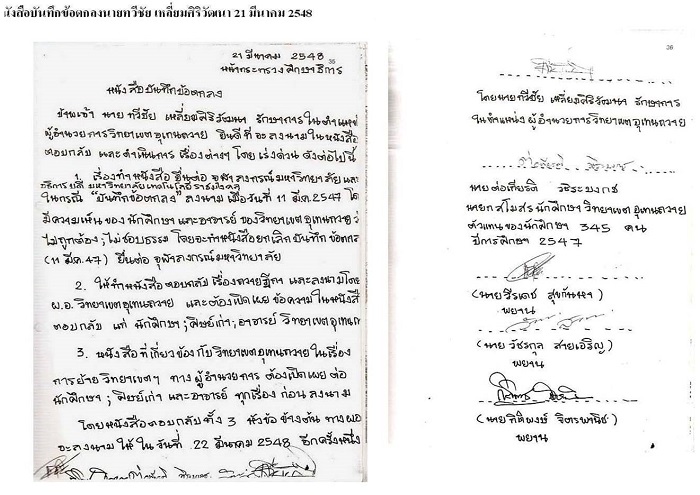 นังสือบันทึกข้อตกลงนายทวีชัย เหลี่ยมศิริวัฒนา 21 มีนาคม 2548
36
21 มีนาคม 2548
หน้ากระทรวงศึกษาธิการ
หนังสือบันทึกข้อตกลง
ข้าพเจ้า นาย ทวีชัย เหลี่ยมศิริวัฒนา รักษาการในตำแหน่
ผู้อำนวยการวิทยาเขตอุเทนถวาย ยินดีที่จะลงนามในหนังสือ
ตอบกลับ และดำเนินการ เรื่องต่างๆ โดยเร่งด่วน ดังต่อไปนี้
1. เรื่องทำหนังสือ ยื่นต่อ จุฬาลงกรณ์มหาวิทยาลัย และ
อธิการบดี มหาวิทยาลัยเทคโนโลยีราชมงคล
ในกรณี "บันทึกข้อตกลง" ลงนามเมื่อวันที่ 11 มีค.2547 โด
มีความเห็นของนักศึกษาและอาจารย์ ของวิทยาเขตอุเทนถวาย ว่
ไม่ถูกต้อง ; ไม่ชอบธรรม โดยจะทำหนังสือยกเลิกบันทึกข้อตกล
(11 มีค.47) ยื่นต่อ จุฬาลงกรณ์มหาวิทยาลัย
2. ให้ทำหนังสือตอบกลับ เรื่องถวายฎีกา และลงนามโด
ผ.อ.วิทยาเขตอุเทนถวาย และต้องเปิดเผยข้อความในหนังสื
ตอบกลับ แก่ นักศึกษา ; ศิษย์เก่า ; อาจารย์ วิทยาเขตอุเทนถ
3. หนังสือที่เกี่ยวข้องกับวิทยาเขตอุเทนถวายในเรื่อง
การย้ายวิทยาเขตฯ ทางผู้อำนวยการ ต้องเปิดเผยต่อ
นักศึกษา ; ศิษย์เก่า และอาจารย์ ทุกเรื่อง ก่อน ลงนาม
โดยหนังสือตอบกลับทั้ง 3 หัวข้อข้างต้น ทางผอ
จะลงนาม ให้ ในวันที่ 22 มีนาคม 2548 อีกครั้งหนึ่ง
36
โดยนายทวีชัย เหลี่ยมศิริวัฒนา รักษาการ
ในตำแหน่งผู้อำนวยการวิทยาเขตอุเทนถวาย
นาย ต่อเกียรติ
นายกสโมสรนักศึกษาวิทยาเขตอุเทนถวาย
ตัวแทนของนักศึกษา 345 คน
ปีการศึกษา 2547
(นายวีรเดช สุขกันหา)
พยาน
(นายวัชรกุล สายเจริญ)
พยาน
(นายกิติพงษ์ จิตรพานิช)
พยาน